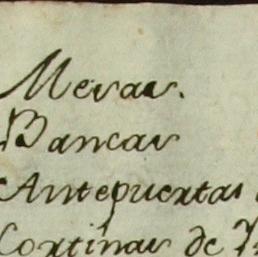 Mesas.
Bancas
Antepuertas
Cortinas de